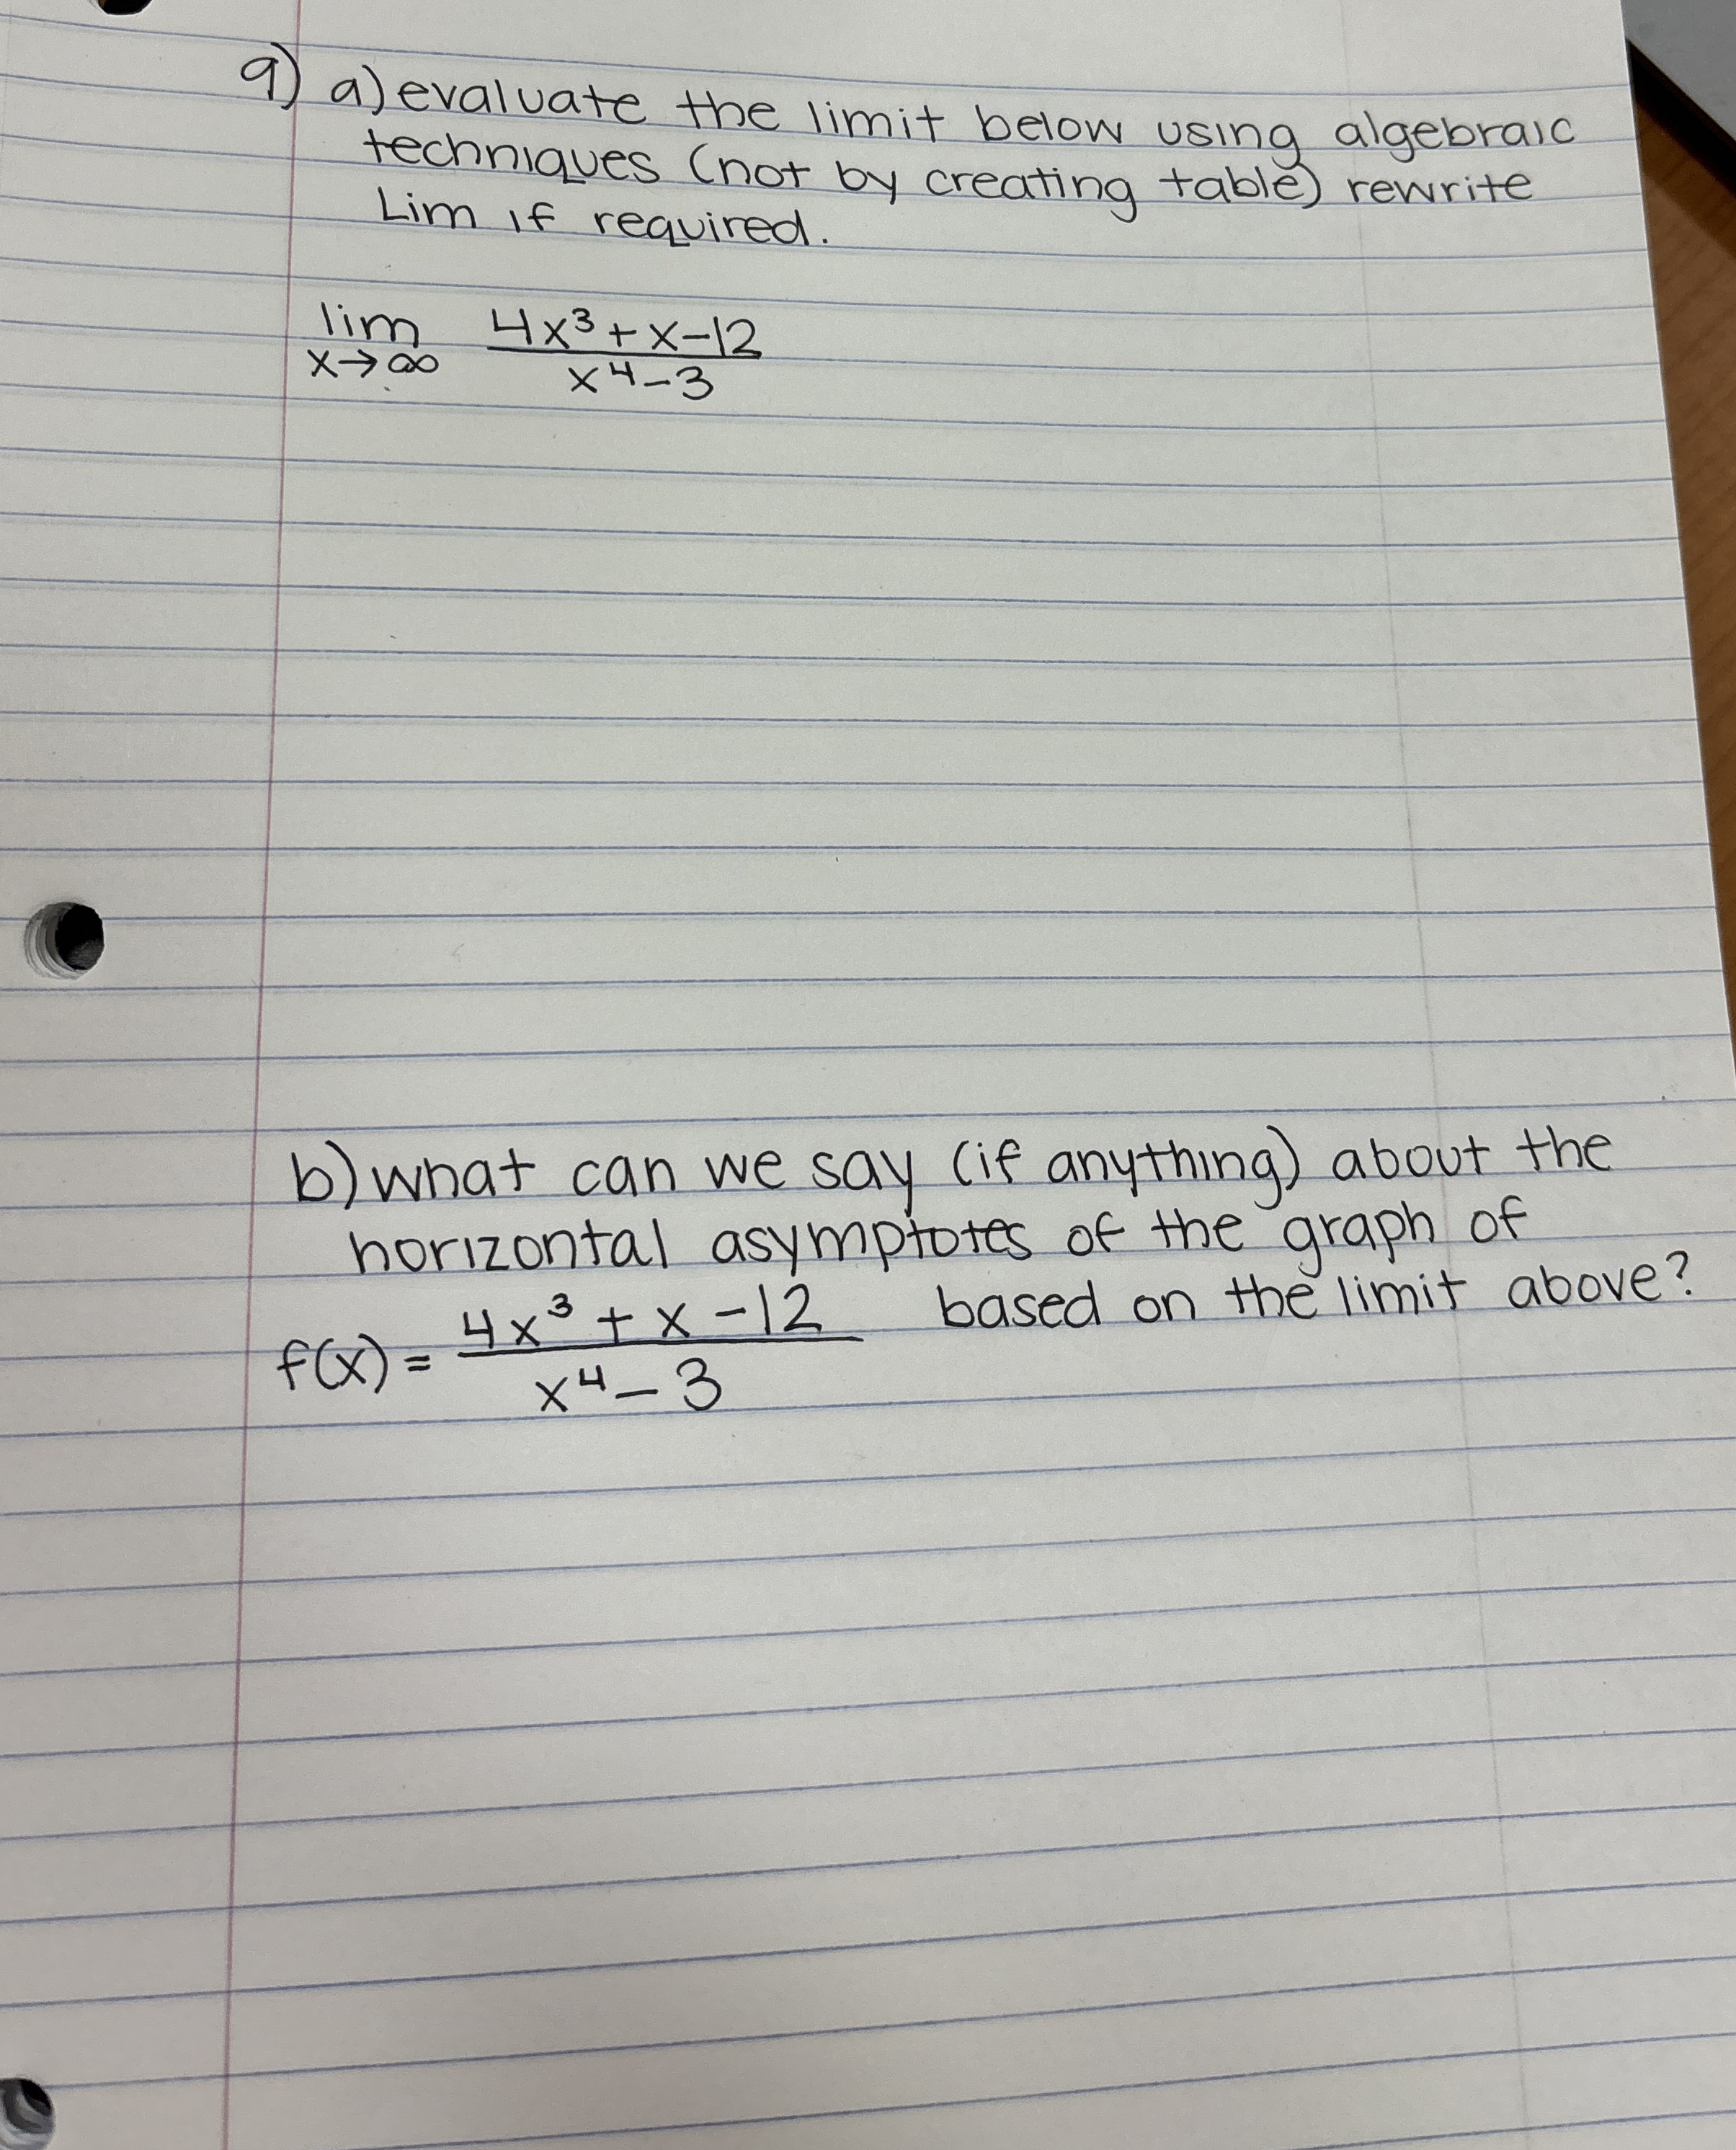 9) a) evaluate the limit below using algebraic
techniques (not by creating table) rewrite
Lim if required.
lim x→∞ (4x³ + x - 12)/(x⁴ - 3)
b) what can we say (if anything) about the
horizontal asymptotes of the graph of
f(x) = (4x³ + x - 12)/(x⁴ - 3) based on the limit above?